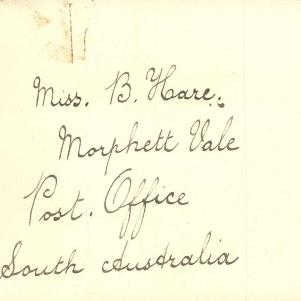 Miss. B. Hare.
Morphett Vale
Post. Office
South Australia